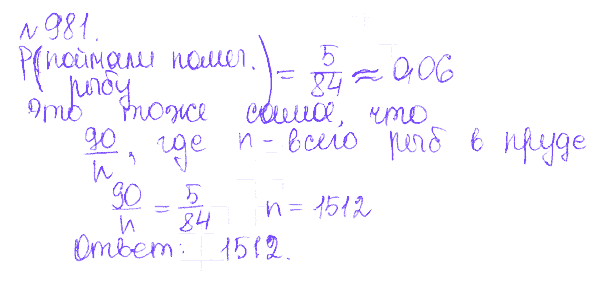 №981.
P(поймали помеч. рыбу) = 5/84 ≈ 0,06
Это тоже самое, что
90/n, где n - всего рыб в пруде
90/n = 5/84 n = 1512
Ответ: 1512.